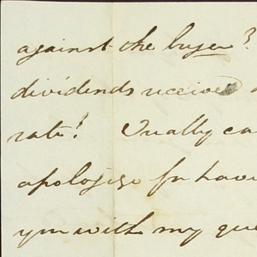 against the buyer?
dividends received
rate? Really ca
apologise for hav
you with my que